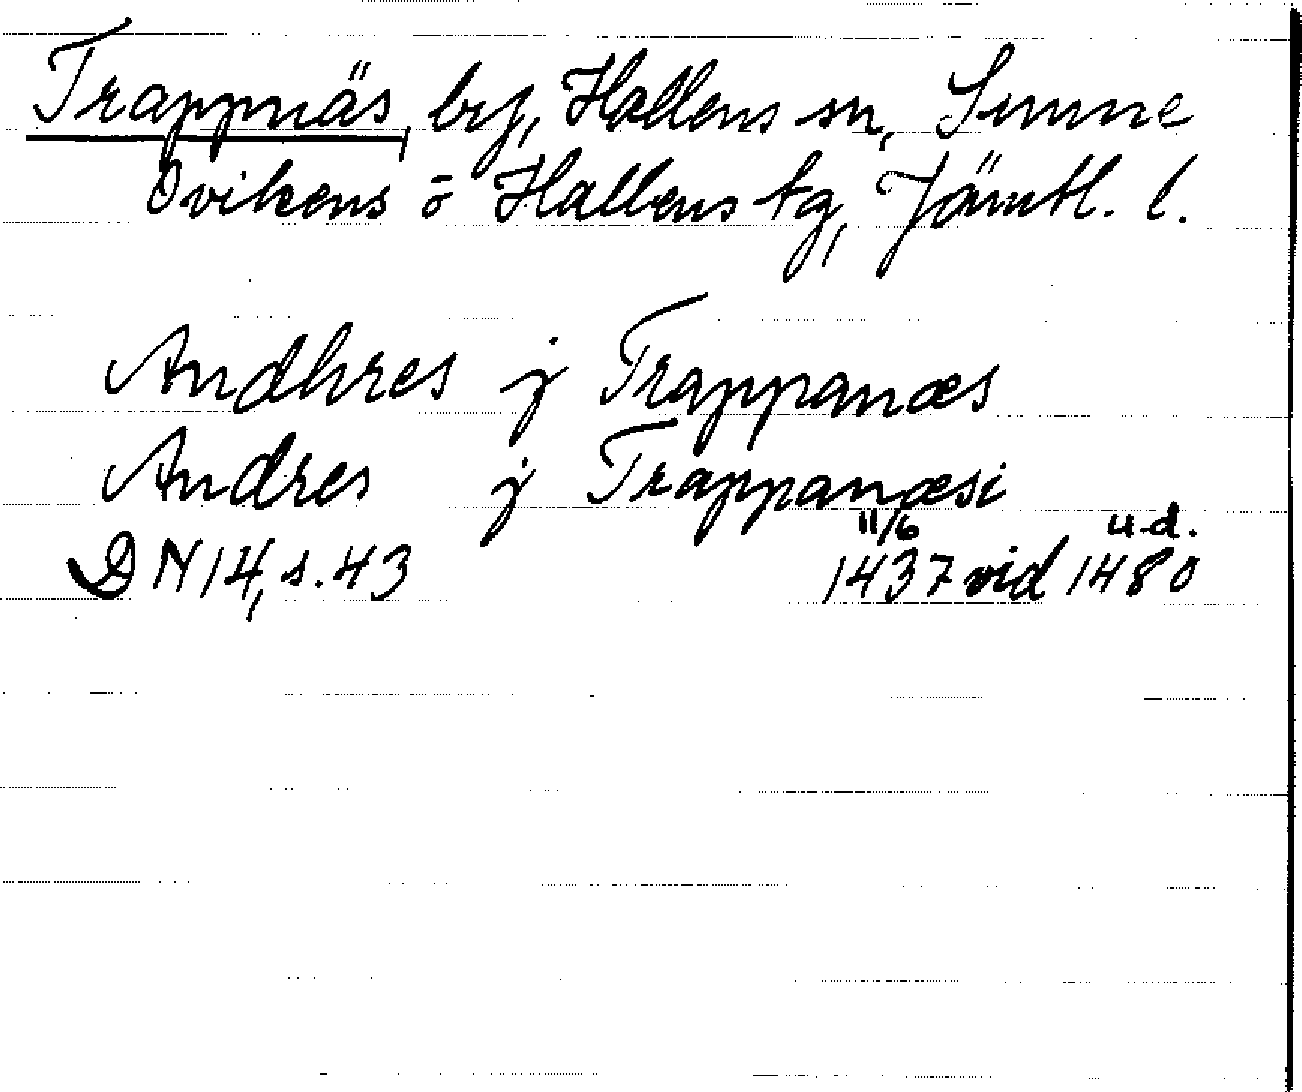 Trappnäs, by, Hallens sn, Sunne
Ovikens o Hallens tg, Jämtl. l.
Andhres j Trappanæs
Andres j Trappanæsi
11/6 u.d.
DN 14, s. 43 1437 vid 1480